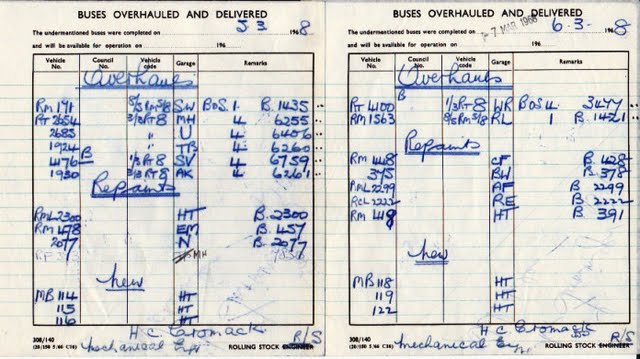 BUSES OVERHAULED AND DELIVERED
The undermentioned buses were completed on 5.3 1968
and will be available for operation on 196
Vehicle No. Council No. Vehicle code Garage Remarks
Overhauls
RM 191 5/5 RM 5/8 SW BOS. 1. B. 1435
RT 2654 3/3 RT 8 MH 4 6255
2685 " U 4 6406
1924 " TB 4 6260
4176 B 1/3 RT 8 SV 4 6759
1930 3/3 RT 8 AK 4 6261
Repaints
RML 2300 HT B. 2300
RM 498 EM B. 457
2077 N B. 2077
New
MB 114 HT
115 HT
116 HT
H C Caromack
308/140 Mechanical Eng R/S
ROLLING STOCK ENGINEER
BUSES OVERHAULED AND DELIVERED
The undermentioned buses were completed on 6.3. 1968
-7 MAR 1968
and will be available for operation on 196
Vehicle No. Council No. Vehicle code Garage Remarks
Overhauls
RT 4100 B 1/3 RT 8 WR BOS 4. 3477
RM 1563 5/5 RM 5/8 RL 1 B. 1421
Repaints
RM 448 CF B. 428
395 BW B. 378
RML 2299 AF B. 2299
RCL 2222 RE B. 2222
RM 419 HT B. 391
New
MB 118 HT
119 HT
122 HT
H C Caromack
308/140 Mechanical Eng. R/S
ROLLING STOCK ENGINEER